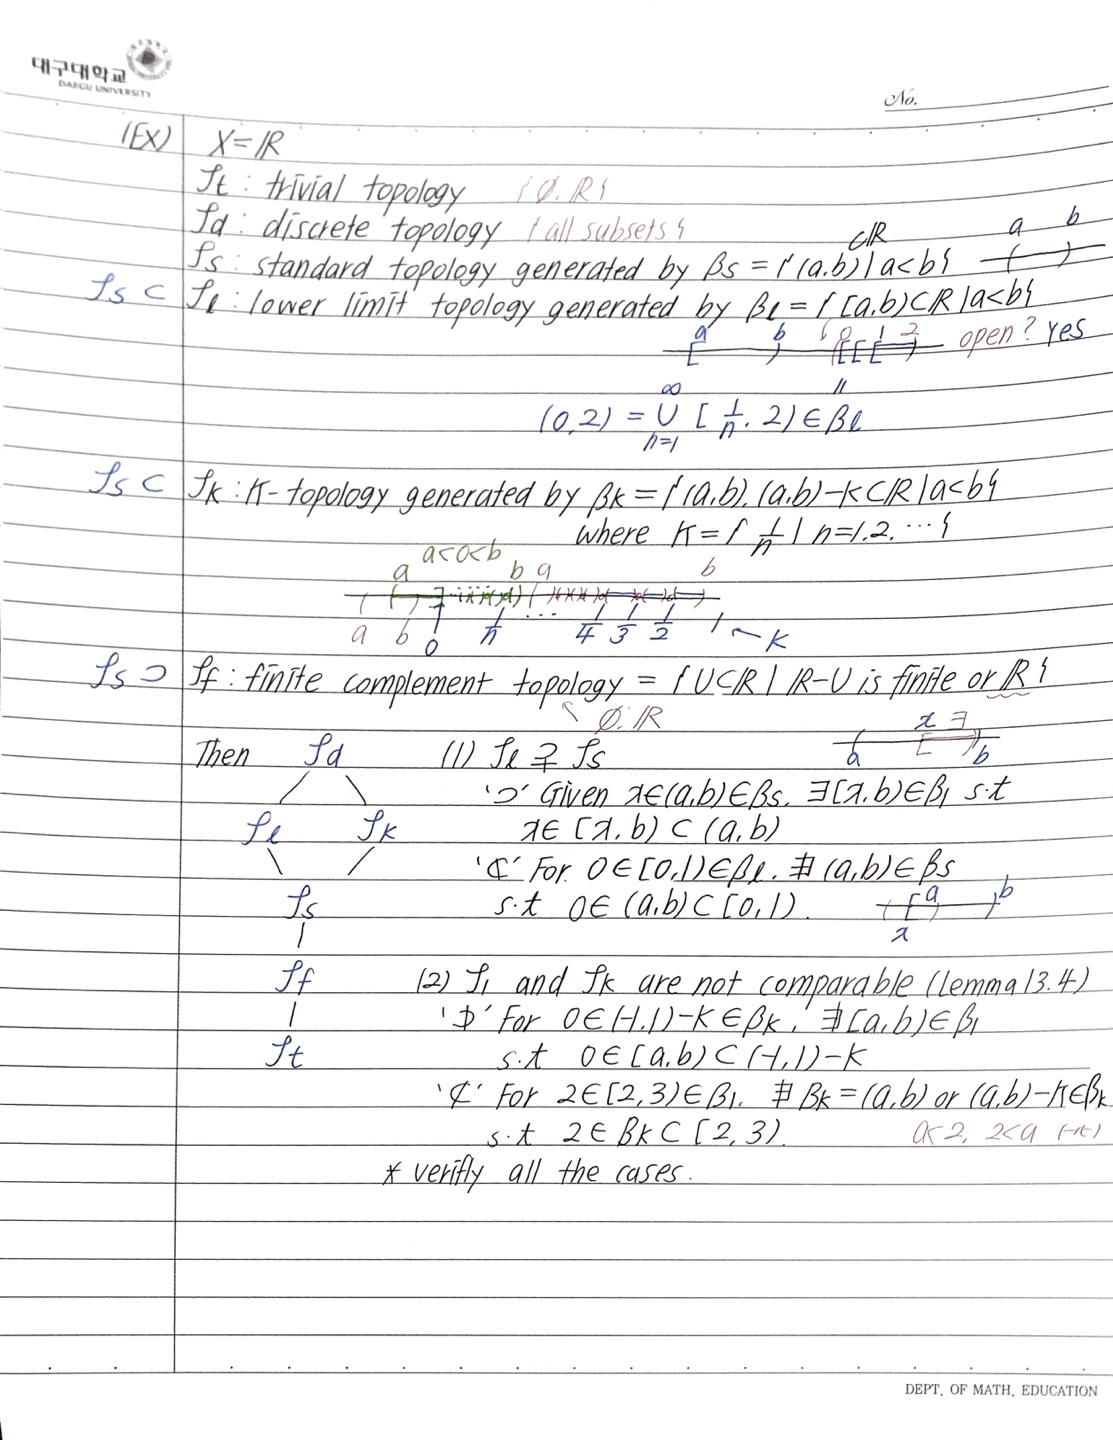 대구대학교
DAEGU UNIVERSITY
No.
(EX) X=ℝ
𝒯t : trivial topology {∅, ℝ}
𝒯d : discrete topology {all subsets}
𝒯s : standard topology generated by βs = {(a,b) | a<b} ⊂ℝ a b
𝒯s ⊂ 𝒯ℓ : lower limit topology generated by βℓ = {[a,b)⊂ℝ | a<b}
a b 0 1 2 open? Yes
(0,2) = ∞∪n=1 [1/n, 2) ∈ βℓ
𝒯s ⊂ 𝒯k : K-topology generated by βk = {(a,b), (a,b)-K⊂ℝ | a<b}
where K = {1/n | n=1,2,⋯}
a<0<b
a b a b
a b 0 1/n ... 1/4 1/3 1/2 1 K
𝒯s ⊃ 𝒯f : finite complement topology = {U⊂ℝ | ℝ-U is finite or ℝ}
∅, ℝ
x ∃
a b
Then 𝒯d (1) 𝒯ℓ ⊋ 𝒯s
'⊃' Given x∈(a,b)∈βs, ∃[x,b)∈β1 s.t
𝒯ℓ 𝒯k x∈[x,b)⊂(a,b)
'⊄' For 0∈[0,1)∈βℓ, ∄(a,b)∈βs
𝒯s s.t 0∈(a,b)⊂[0,1). a b
x
𝒯f (2) 𝒯1 and 𝒯k are not comparable (lemma 13.4)
'⊅' For 0∈(-1,1)-K∈βk, ∄[a,b)∈β1
𝒯t s.t 0∈[a,b)⊂(-1,1)-K
'⊄' For 2∈[2,3)∈β1, ∄ βk=(a,b) or (a,b)-K∈βk
s.t 2∈βk⊂[2,3). a<2, 2<a
* verifly all the cases.
DEPT. OF MATH. EDUCATION